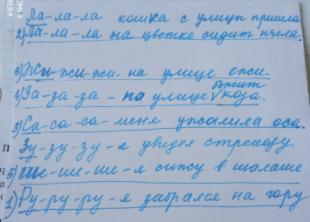 Ла-ла-ла кошка с улицы пришла
2) Ла-ла-ла на цветке сидит пчела.
6) Жи-жи-жи-на улице ежи
4) За-за-за-на улице бежит коза.
3) Са-са-са-меня ужалила оса.
Зу-зу-зу-я увидел стрекозу
5) Ше-ше-ше-я сижу в шалаше
1) Ру-ру-ру-я забрался на гору